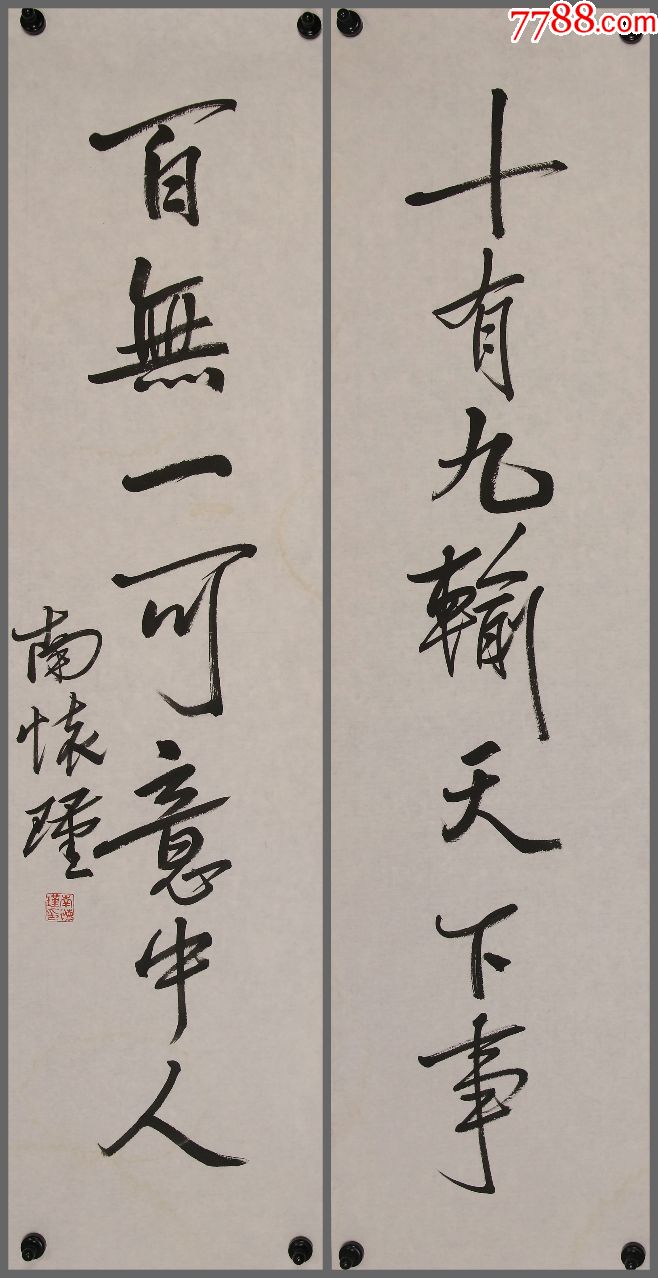 7788.com
十有九輸天下事
百無一可意中人
南懷瑾